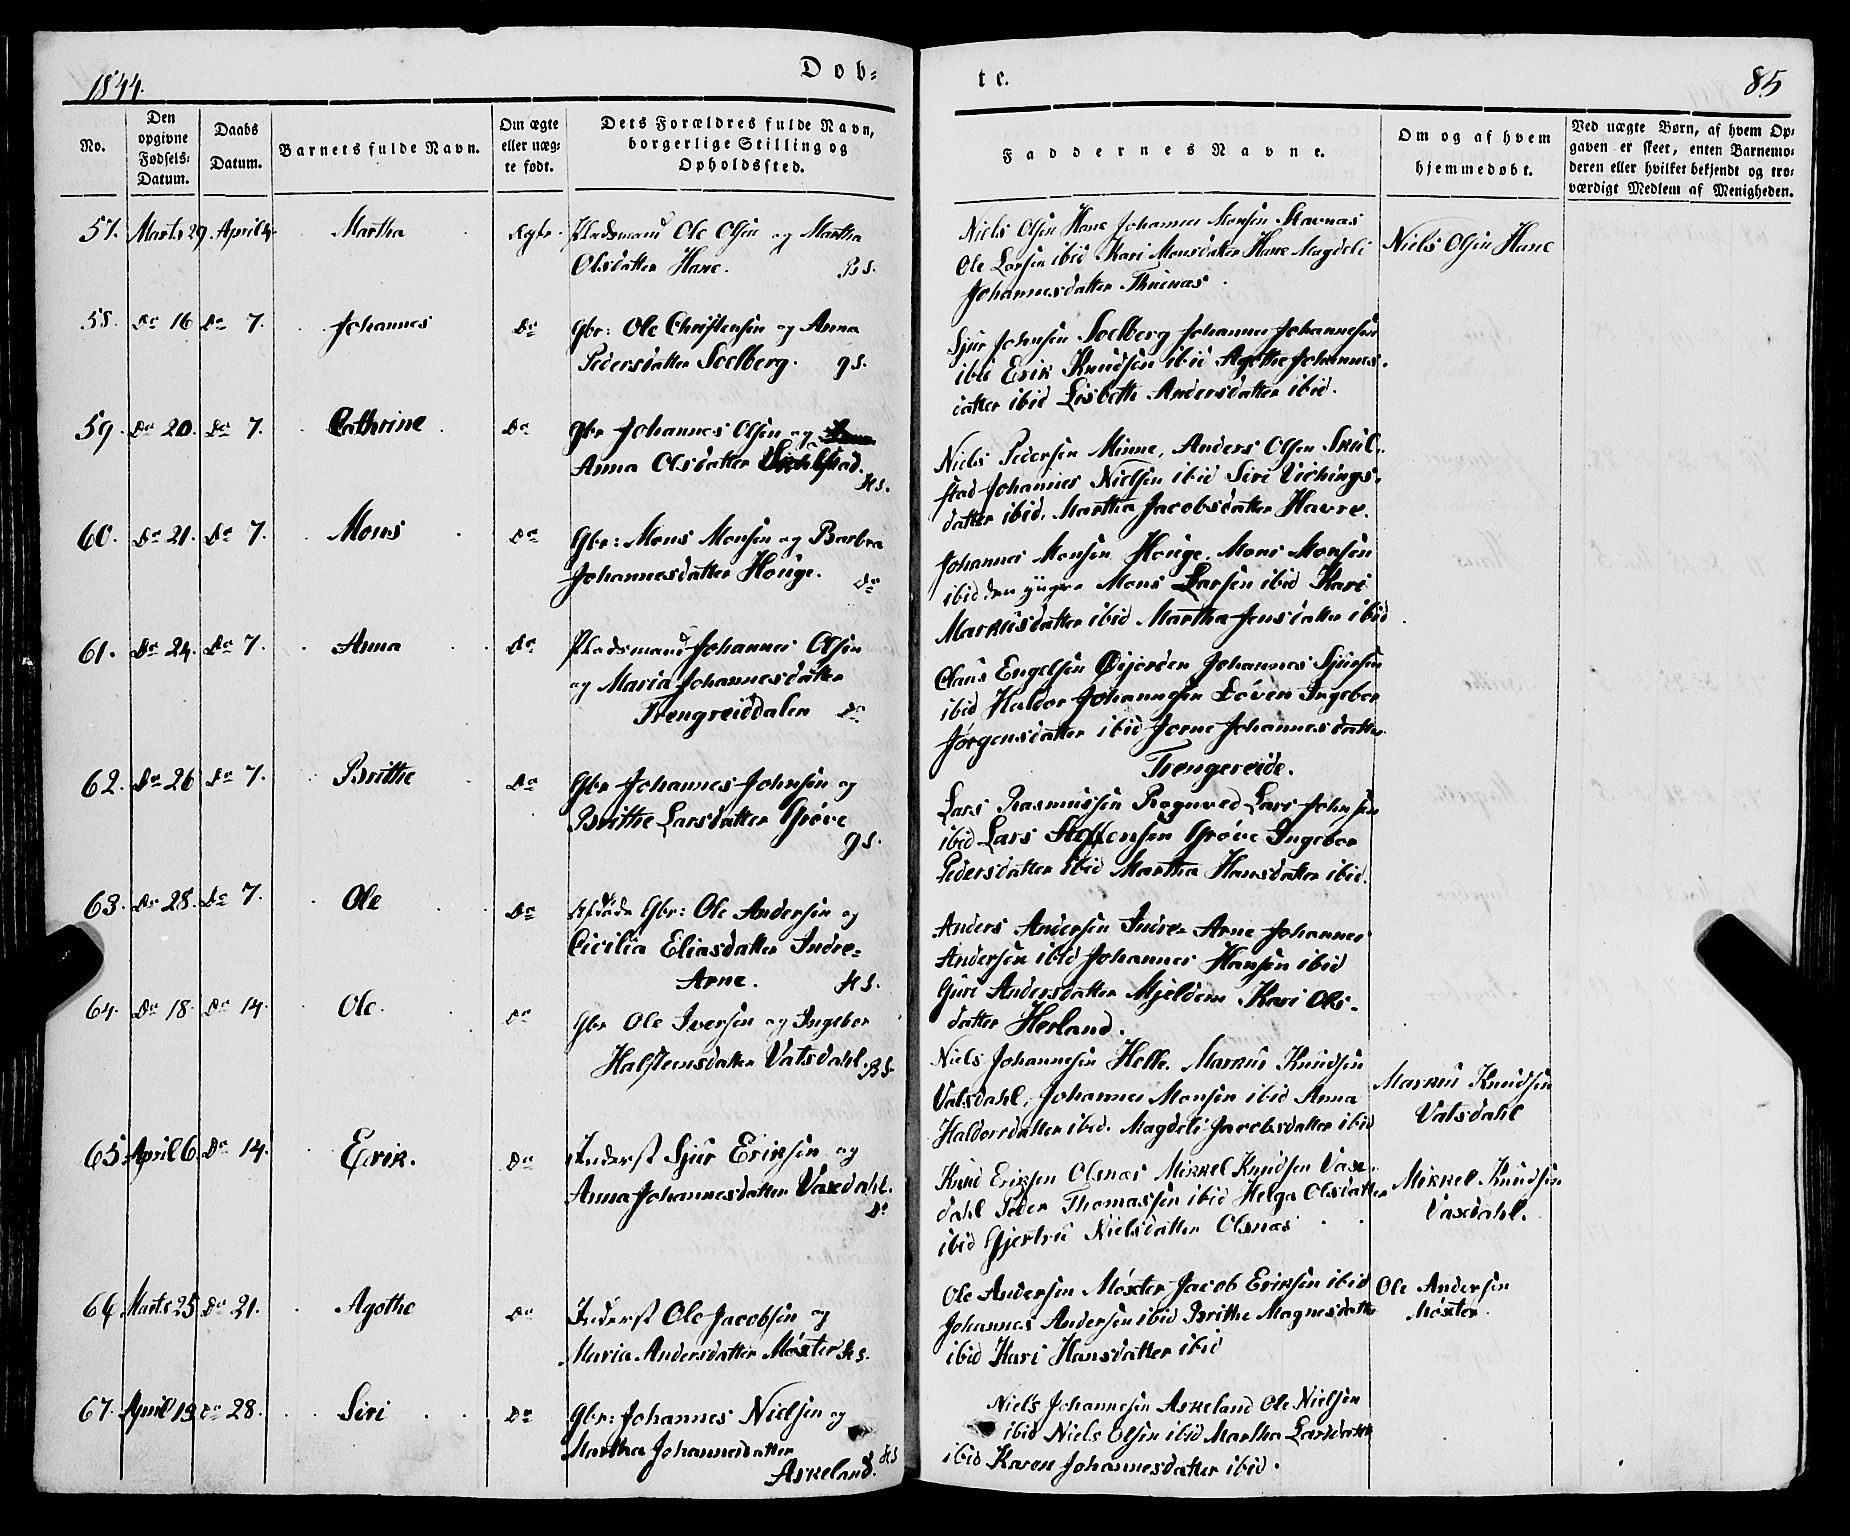 1844.
Døb-
te.
85
No.
Den opgivne Fødsels-Datum.
Daabs Datum.
Barnets fulde Navn.
Om ægte eller uæg-te født.
Dets Forældres fulde Navn, borgerlige Stilling og Opholdssted.
Faddernes Navne.
Om og af hvem hjemmedøbt.
Ved uægte Børn, af hvem Op-gaven er skeet, enten Barnemo-deren eller hvilket bekjendt og tro-værdigt Medlem af Menigheden.
57. Marts 29 April 4. Martha Ægte. Pladsmand Ole Olsen og Martha
Olsdatter Hane. BS.
Niels Olsen Hane Johannes Monsen Stavnæs
Ole Larsen ibid Kari Monsdatter Hane Magdeli
Johannesdatter
Niels Olsen Hane
58. Do 16 Do 7. Johannes Do Gbr: Ole Christensen og Anna
Pedersdatter Soelberg. gS.
Sjur Johnsen Soelberg Johannes Johannesen
ibid Erik Knudsen ibid Agathe Johannes-
datter ibid Lisbeth Andersdatter ibid.
59. Do 20. Do 7. Cathrine Do Gbr Johannes Olsen og
Anna Olsdatter Skulstad. HS.
Niels Pedersen Minne, Anders Olsen Skul-
stad Johannes Nielsen ibid Siri Vichings-
datter ibid. Martha Jacobsdatter Havre.
60. Do 21. Do 7. Mons Do Gbr: Mons Monsen og Barbra
Johannesdatter Houge. Do
Johannes Monsen Houge. Mons Monsen
ibid den yngre Mons Larsen ibid Kari
Markusdatter ibid Martha Jensdatter ibid.
61. Do 24. Do 7. Anna Do Pladsmand Johannes Olsen
og Maria Johannesdatter
Trengreiddalen Do
Claus Engelsen Øijerden Johannes Sjursen
ibid Haldor Johannesen Løven Ingebor
Jørgensdatter ibid Jorne Johannesdatter
Trengereide.
62. Do 26 Do 7. Brithe Do Gbr Johannes Johnsen og
Brithe Larsdatter Grøve gS.
Lars Rasmussen Rognved Lars Johnsen
ibid Lars Steffensen Grøve Ingebor
Pedersdatter ibid Martha Hansdatter ibid.
63. Do 28. Do 7. Ole Do Afdøde Gbr: Ole Andersen og
Cicilia Eliasdatter Indre-
Arne. HS.
Anders Andersen Indre-Arne Johannes
Andersen ibid Johannes Hansen ibid
Guri Andersdatter Mjeldem Kari Ols-
datter Herland.
64. Do 18. Do 14. Ole. Do Gbr Ole Iversen og Ingebor
Halsteensdatter Vatsdahl. BS.
Niels Johannesen Helle. Markus Knudsen
Vatsdahl, Johannes Monsen ibid Anna
Haldorsdatter ibid. Magdeli Jacobsdatter ibid
Markus Knudsen
Vatsdahl
65. April 6. Do 14. Erik. Do Inderst Sjur Eriksen og
Anna Johannesdatter Vaxdahl. Do
Knud Eriksen Olsnæs Mikkel Knudsen Vax-
dahl Peder Thomassen ibid Helga Olsdatter
ibid Gjertru Nielsdatter Olsnæs
Mikkel Knudsen
Vaxdahl.
66. Marts 25 Do 21. Agathe Do Inderst Ole Jacobsen og
Maria Andersdatter Møxter HS.
Ole Andersen Møxter Jacob Eriksen ibid
Johannes Andersen ibid Brithe Magnesdatter
ibid Kari Hansdatter ibid
Ole Andersen
Møxter.
67. April 19. Do 28. Siri Do Gbr: Johannes Nielsen og
Martha Johannesdatter
Askeland. HS
Niels Johannesen Askeland Ole Nielsen
ibid Niels Olsen ibid Martha Larsdatter
ibid Karen Johannesdatter ibid.